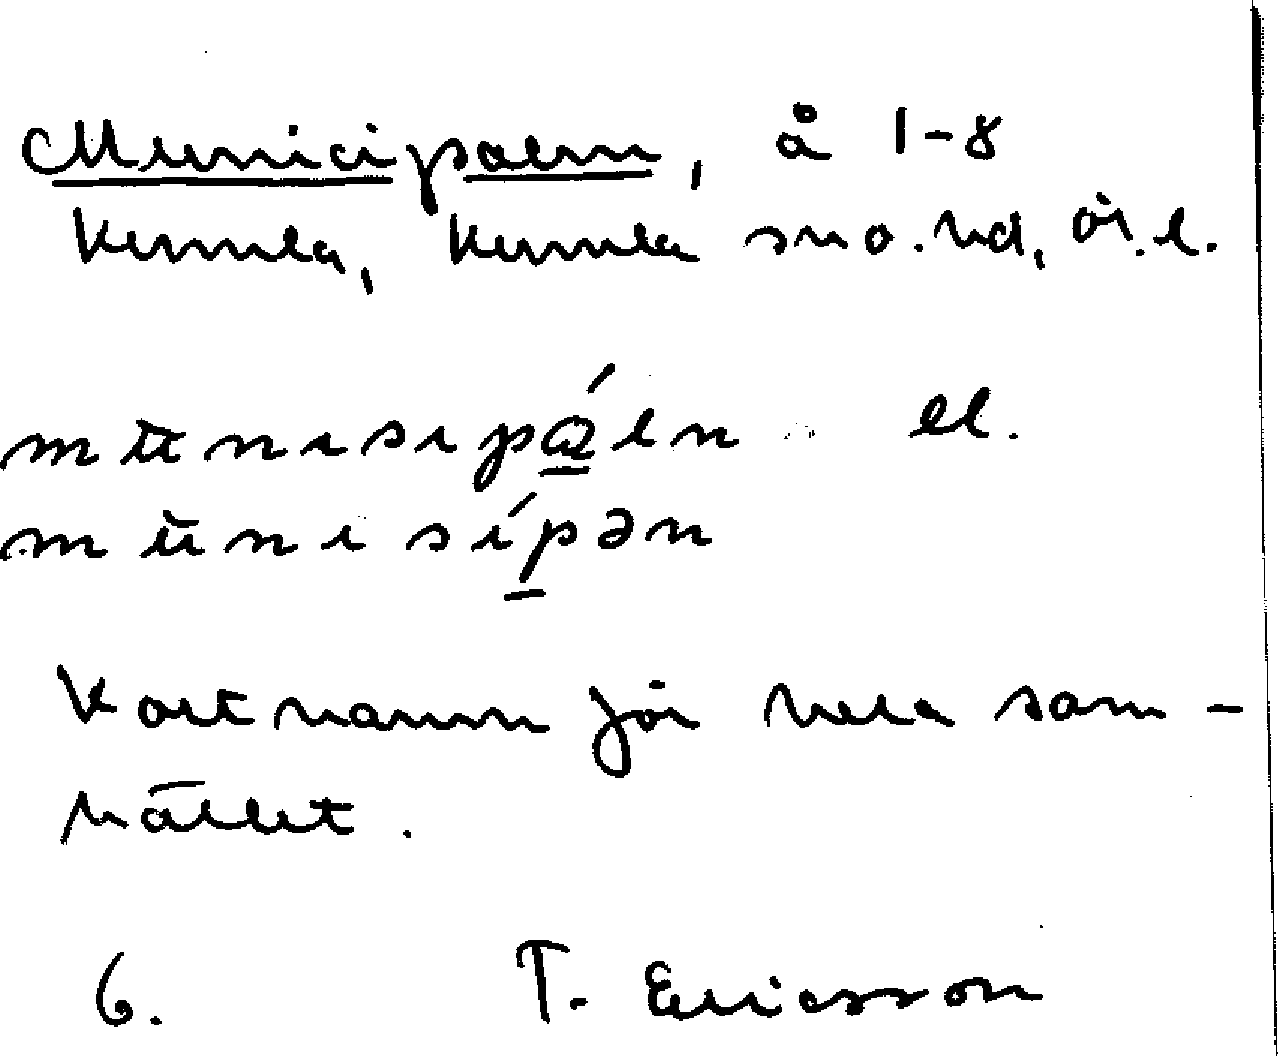 Municipaln, å 1-8
Kumla, Kumla sn o. hd, Ör. l.
mūnısıpáln el.
mūnısípən
Kortnamn för hela sam-
hället.
6. T. Ericsson